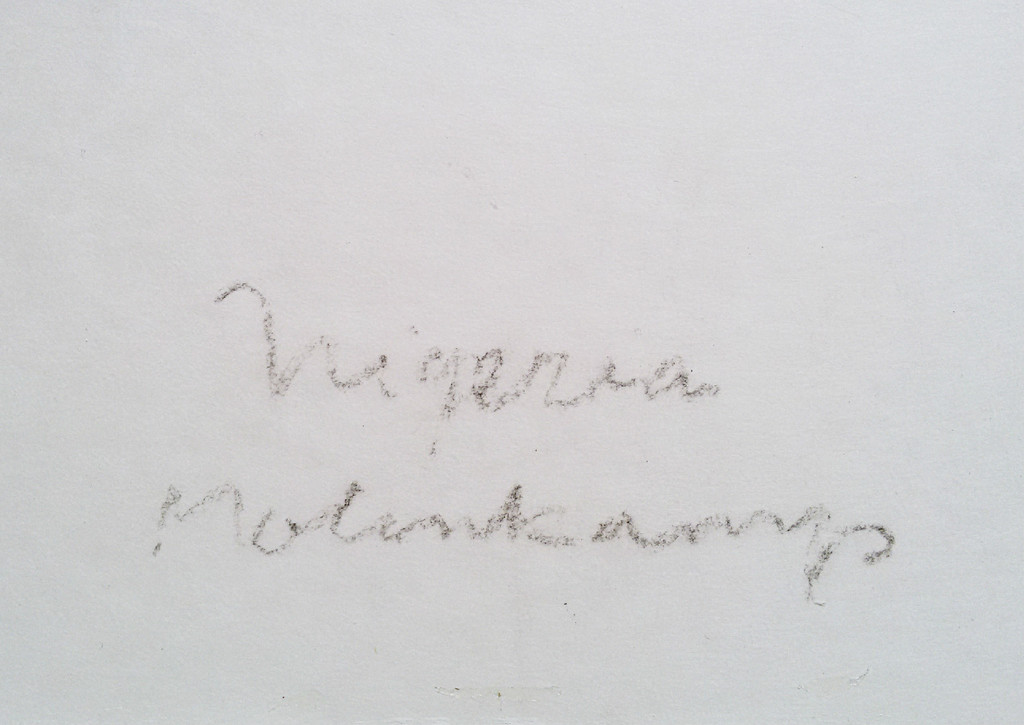 Nigeria
Molenkamp